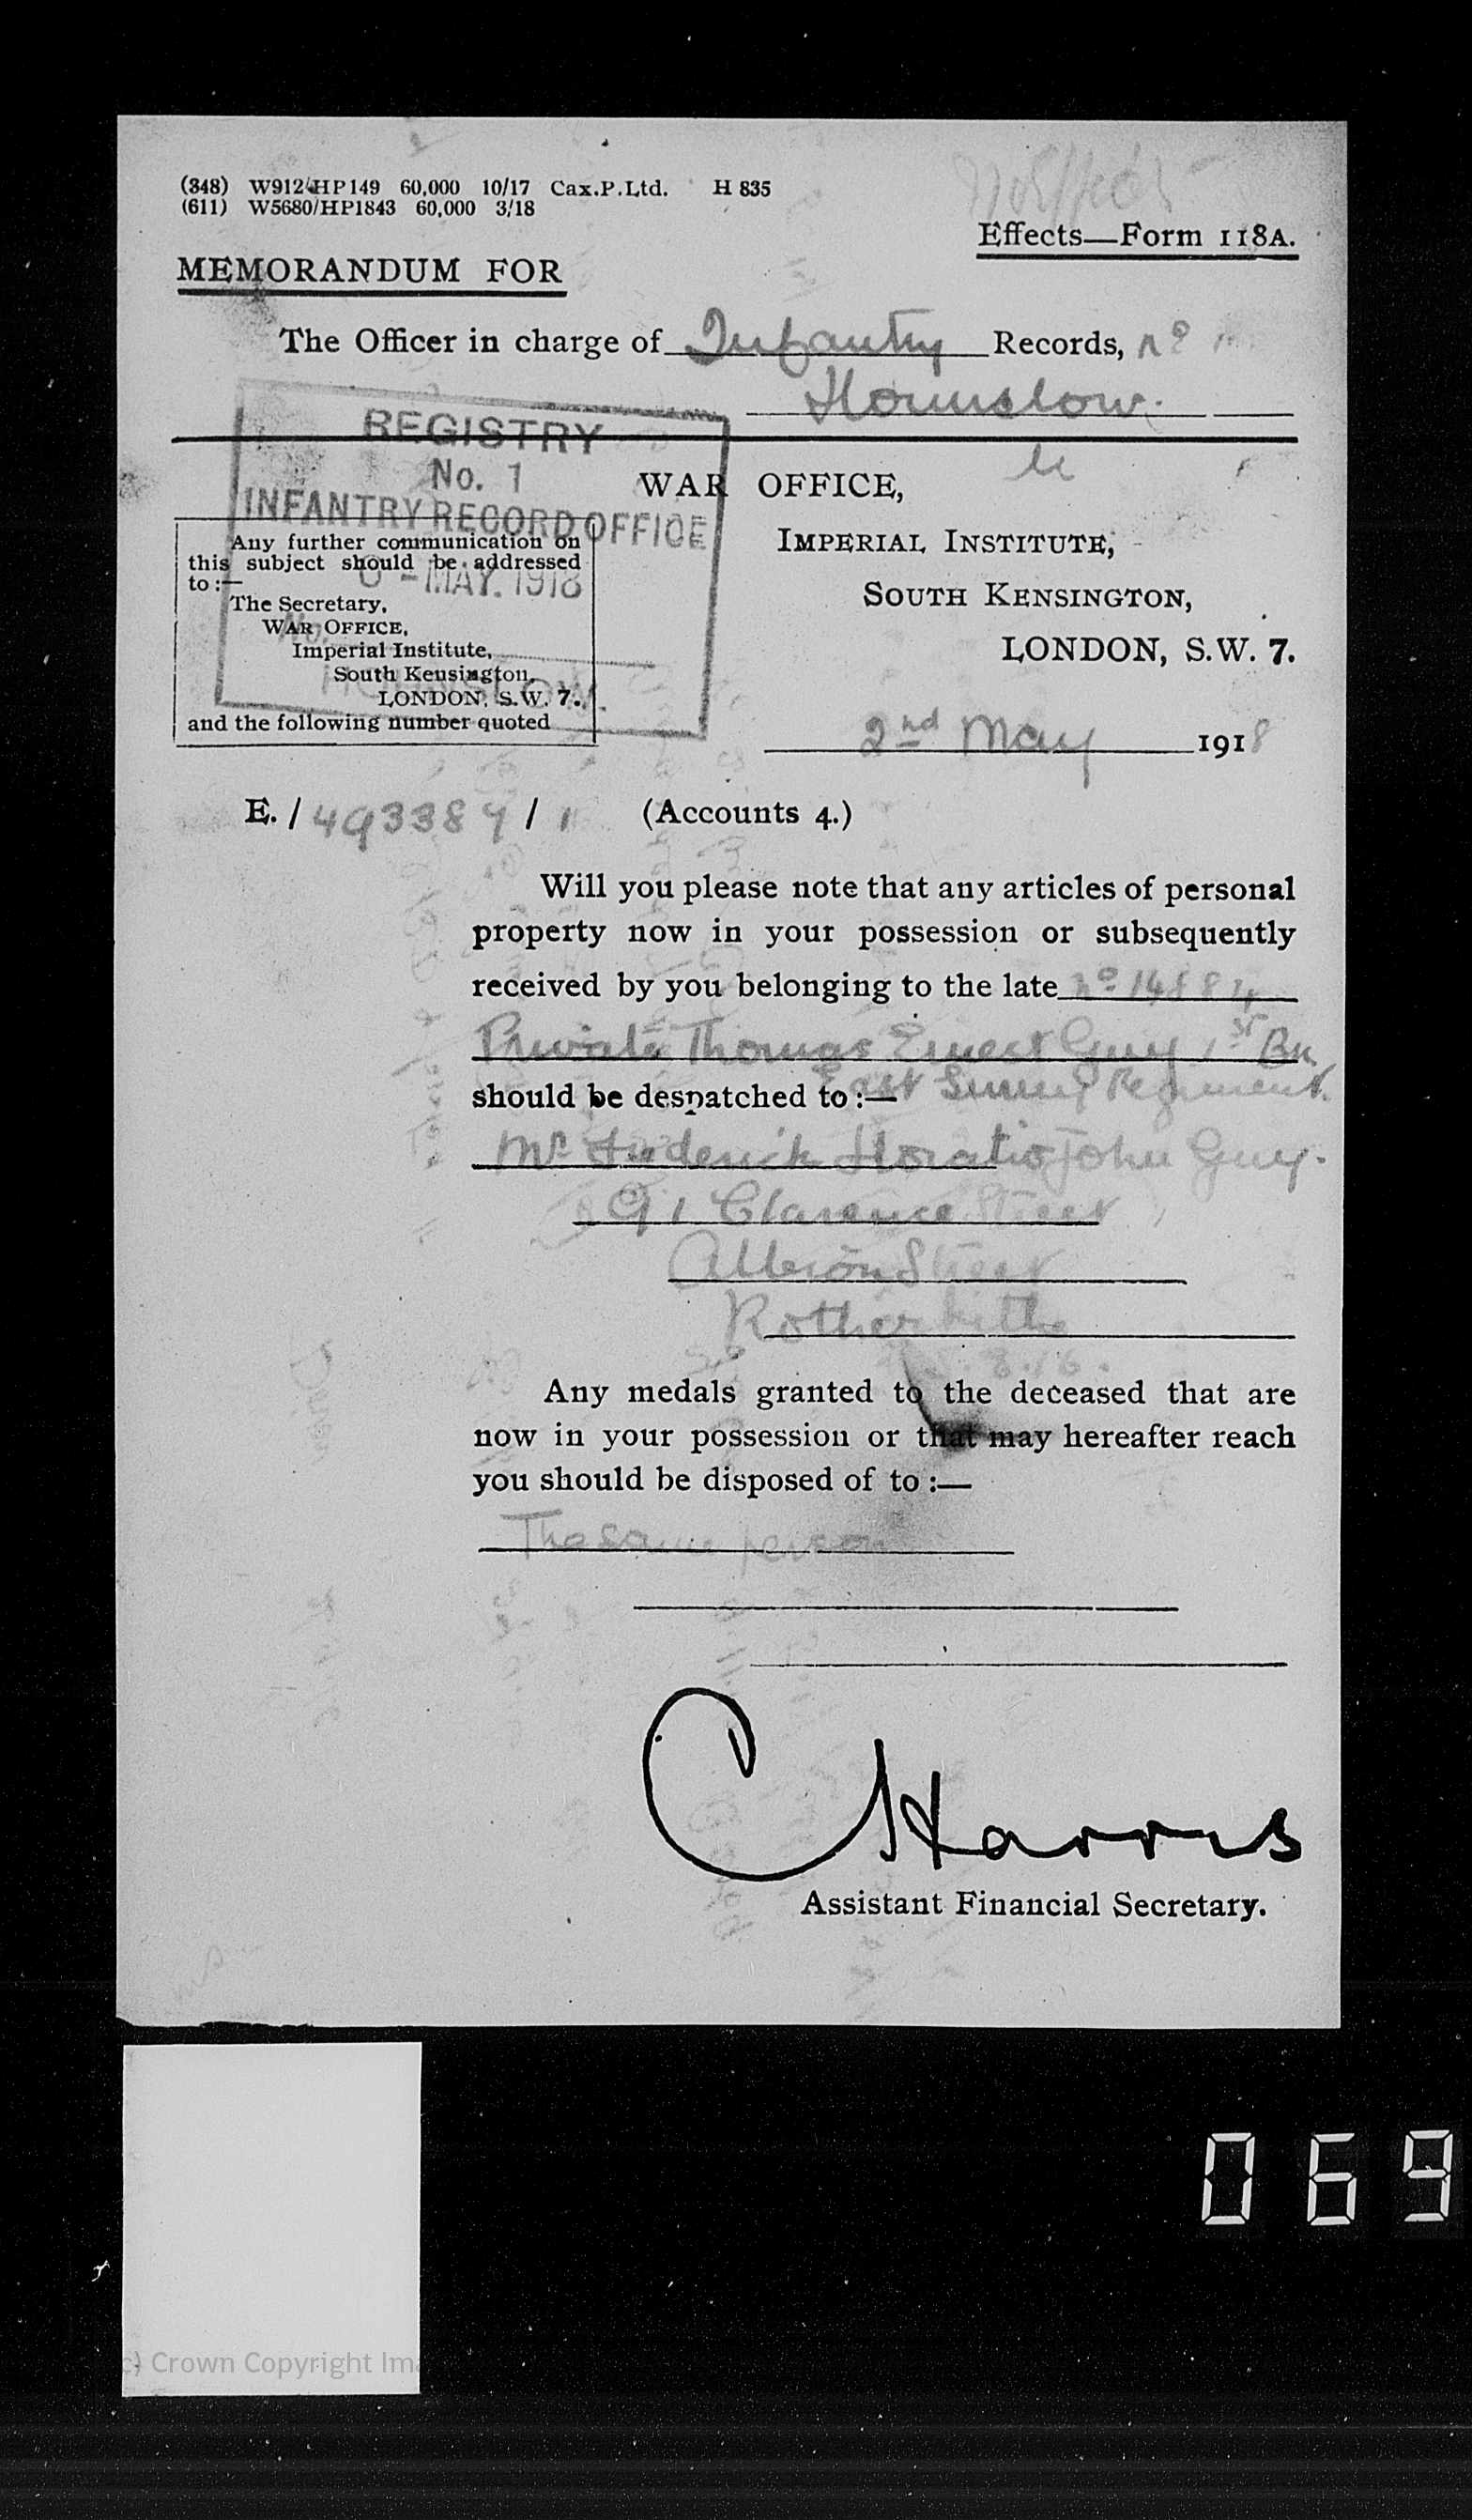 (348) W912/HP149 60,000 10/17 Cax.P.Ltd. H 835
(611) W5680/HP1843 60,000 3/18
Effects—Form 118A.
MEMORANDUM FOR
The Officer in charge of Infantry Records, No
Hounslow.
REGISTRY
No. 1
INFANTRY RECORD OFFICE
- MAY. 1918
No.
HOUNSLOW.
WAR OFFICE,
IMPERIAL INSTITUTE,
SOUTH KENSINGTON,
LONDON, S.W. 7.
Any further communication on
this subject should be addressed
to :—
The Secretary,
WAR OFFICE,
Imperial Institute,
South Kensington,
LONDON, S.W. 7.
and the following number quoted
2nd May 1918
E. / / 1 (Accounts 4.)
Will you please note that any articles of personal
property now in your possession or subsequently
received by you belonging to the late No 14884
Private Thomas Ernest Guy 1st Bn.
East Surrey Regiment.
should be despatched to :—
Mr Frederick Horatio John Guy.
91 Clarence Street
Albion Street
Rotherhithe
Any medals granted to the deceased that are
now in your possession or that may hereafter reach
you should be disposed of to :—
The same person
C Harris
Assistant Financial Secretary.
069
(c) Crown Copyright Ima